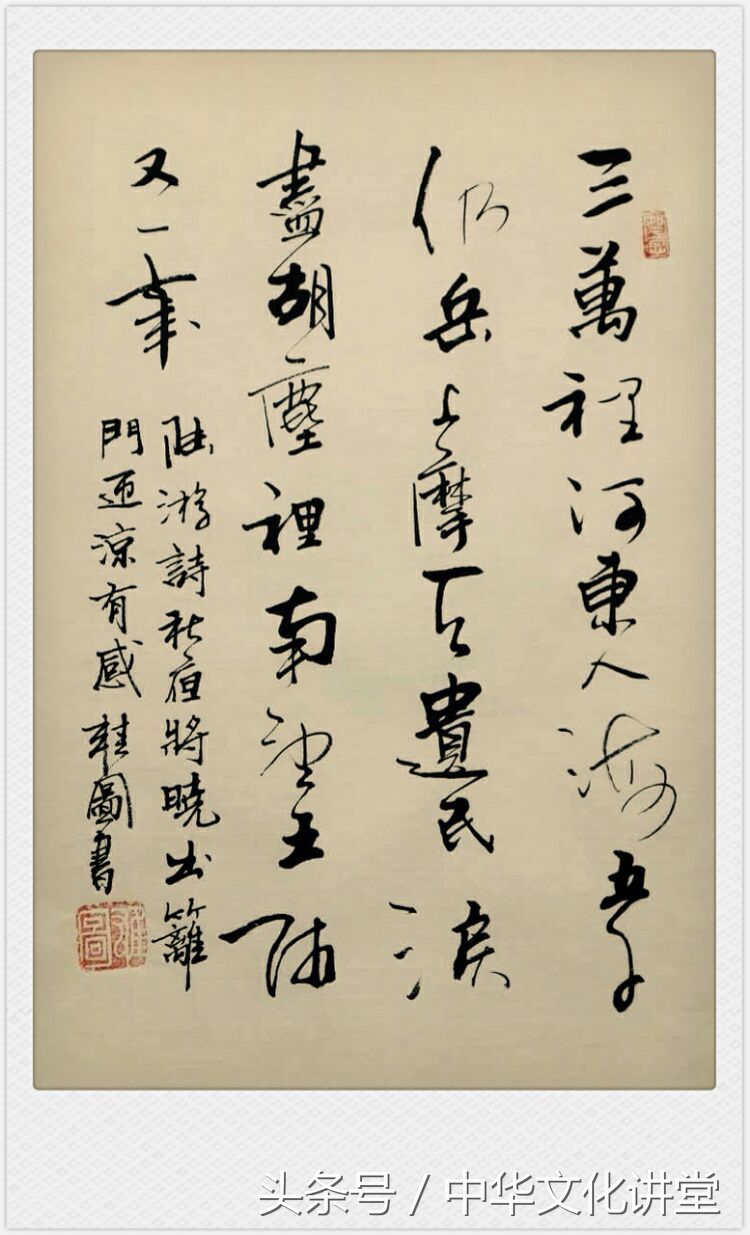 三萬裡河東入海五千
仞岳上摩天遺民淚
盡胡塵裡南望王師
又一年
陸游詩秋夜將曉出籬
門迎涼有感 圖書
头条号 / 中华文化讲堂